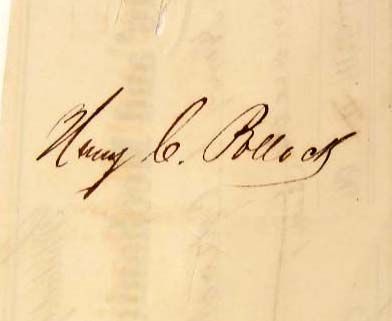 Henry C. Pollock